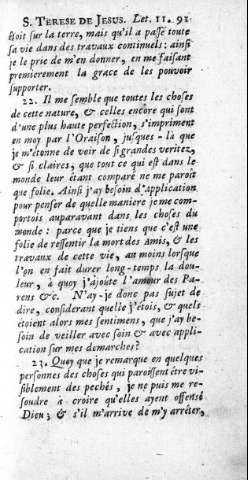 S. TERESE DE JESUS. Let. 11. 91
étoit sur la terre, mais qu'il a passé toute
sa vie dans des travaux continuels: ainsi
je le prie de m'en donner, en me faisant
premierement la grace de les pouvoir
supporter.
22. Il me semble que toutes les choses
de cette nature, & celles encore qui sont
d'une plus haute perfection, s'impriment
en moy par l'Oraison, jusques-là que
je m'étonne de voir de si grandes veritez,
& si claires, que tout ce qui est dans le
monde leur étant comparé ne me paroît
que folie. Ainsi j'ay besoin d'application
pour penser de quelle maniere je me com-
portois auparavant dans les choses du
monde: parce que je tiens que c'est une
folie de ressentir la mort des Amis, & les
travaux de cette vie, au moins lorsque
l'on en fait durer long-temps la dou-
leur, à quoy j'ajoûte l'amour des Pa-
rens &c. N'ay-je donc pas sujet de
dire, considerant quelle j'étois, & quels
étoient alors mes sentimens, que j'ay be-
soin de veiller avec soin & avec appli-
cation sur mes démarches?
23. Quoy que je remarque en quelques
personnes des choses qui paroissent être vi-
siblement des pechés, je ne puis me re-
soudre à croire qu'elles ayent offensé
Dieu; & s'il m'arrive de m'y arrêter,